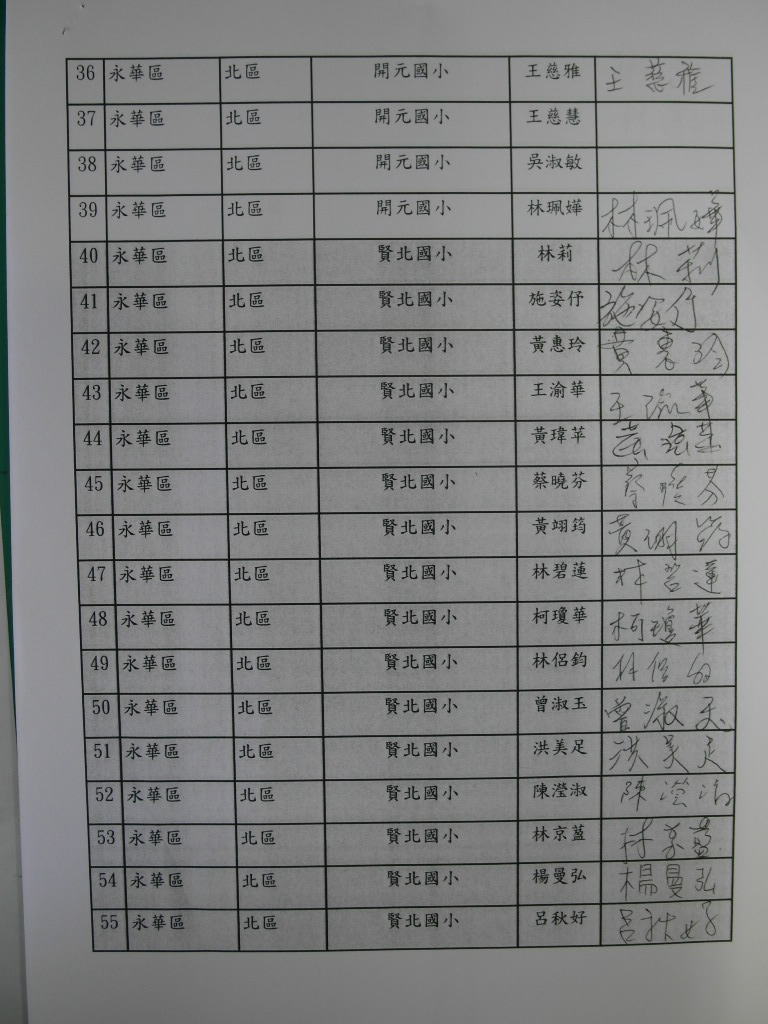 36 永華區 北區 開元國小 王慈雅 王慈雅
37 永華區 北區 開元國小 王慈慧
38 永華區 北區 開元國小 吳淑敏
39 永華區 北區 開元國小 林珮嬅 林珮嬅
40 永華區 北區 賢北國小 林莉 林莉
41 永華區 北區 賢北國小 施姿伃 施姿伃
42 永華區 北區 賢北國小 黃惠玲 黃惠玲
43 永華區 北區 賢北國小 王渝華 王渝華
44 永華區 北區 賢北國小 黃瑋苹 黃瑋苹
45 永華區 北區 賢北國小 蔡曉芬 蔡曉芬
46 永華區 北區 賢北國小 黃翊筠 黃翊筠
47 永華區 北區 賢北國小 林碧蓮 林碧蓮
48 永華區 北區 賢北國小 柯瓊華 柯瓊華
49 永華區 北區 賢北國小 林侶鈞 林侶鈞
50 永華區 北區 賢北國小 曾淑玉 曾淑玉
51 永華區 北區 賢北國小 洪美足 洪美足
52 永華區 北區 賢北國小 陳瀅淑 陳瀅淑
53 永華區 北區 賢北國小 林京蓋 林京蓋
54 永華區 北區 賢北國小 楊曼弘 楊曼弘
55 永華區 北區 賢北國小 呂秋好 呂秋好